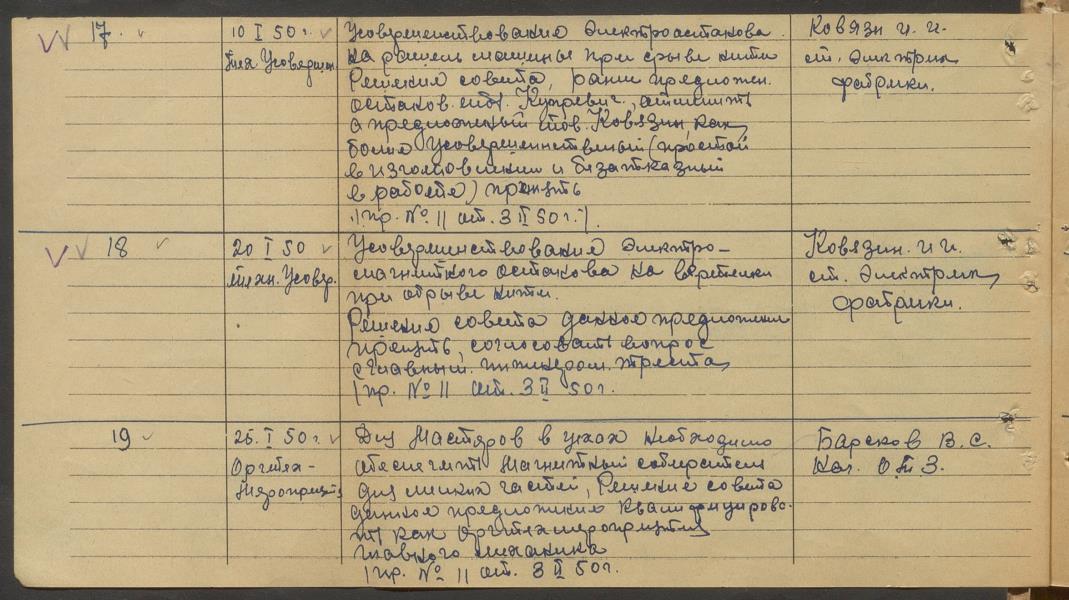 17.
10 I 50 г.
Тех. Усоверш.
Усовершенствование Электроостанова
на рашель машине при срыве нити
Решение совета, ранее предложен.
останов. тов. Купревич,
а предложенный тов. Ковязин, как
более усовершенственный (простой
в изготовлении и безатказный
в работе) принять
(пр. № 11 от. 3 II 50 г.)
Ковязин И. И.
ст. электрик
фабрики.
18
20 I 50
техн. Усовер.
Усовершенствование Электро-
магнитного останова на веретенки
при обрыве нити.
Решение совета данное предложение
принять, согласовать вопрос
с главным. инженером. треста
(пр. № 11 от. 3 II 50 г.
Ковязин. И И.
ст. Электрик
фабрики.
19
25. I 50 г.
Оргтех-
мероприят
Для Мастеров в цехах необходимо
обеспечить магнитный собиратели
для мелких частей, Решение совета
данное предложение квалифицирова-
ть как Оргтехмероприятия
главного механика
(пр. № 11 от. 3 II 50 г.
Барсков В. С.
Нач. О. Т. З.